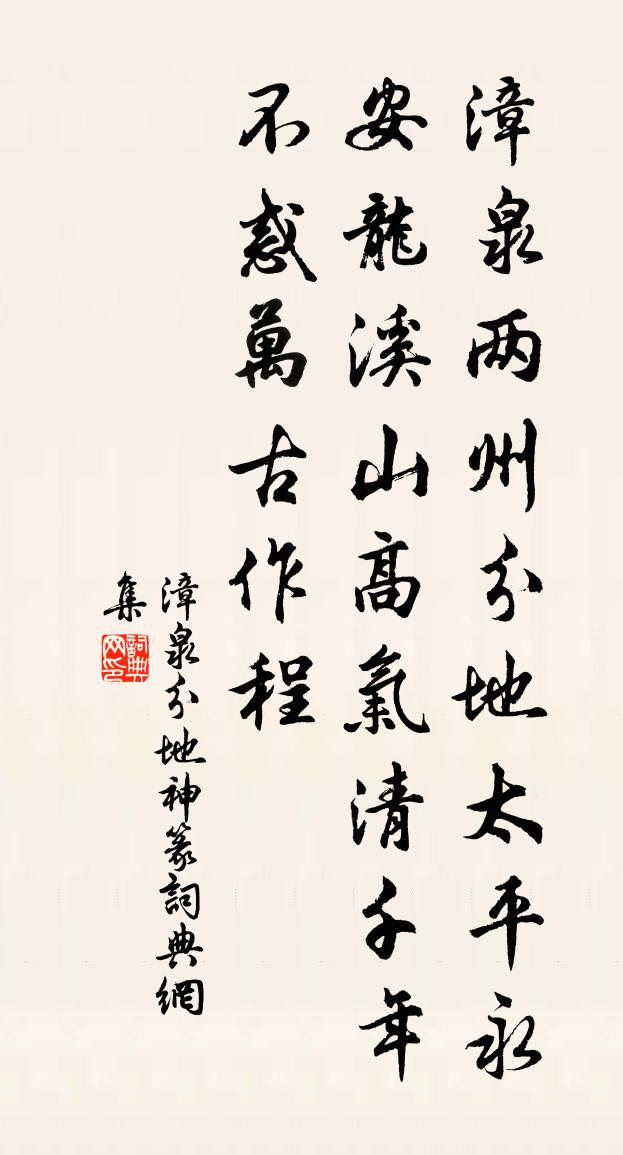 漳泉两州分地太平永
安龍溪山高氣清千年
不惑萬古作程
漳泉分地神篆詞典網
集
詞典网印